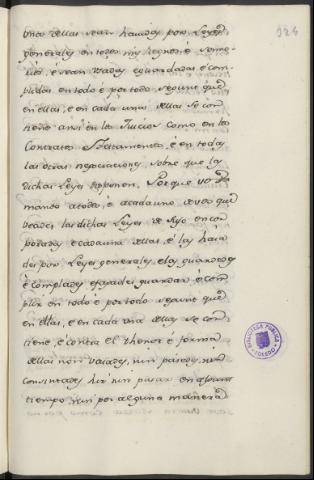 124
una dellas sean havidas por Leyes
generales en todos mis regnos é Seño-
rios, é sean usadas é guardadas é com-
plidas en todo é por todo segunt que
en ellas, é en cada una dellas se con-
tiene asi en los Juicios como en los
Contratos é Testamentos, é en todas
las otras negociaciones sobre que las
dichas Leyes disponen, Porque vos
mando a todos, é a cada uno de vos que
veades las dichas Leyes de suso encor-
poradas é cada una dellas, é las haia
des por Leyes generales, é las guardedes
é complades é fagades guardar é com-
plir en todo é por todo segunt que
en ellas, é en cada una dellas se con-
tiene, é contra el thenor é forma
dellas non vaiades, nin pasedes, nin
consintades hir nin pasar en algunt
tiempo nin por alguna manera
BIBLIOTECA PUBLICA
TOLEDO